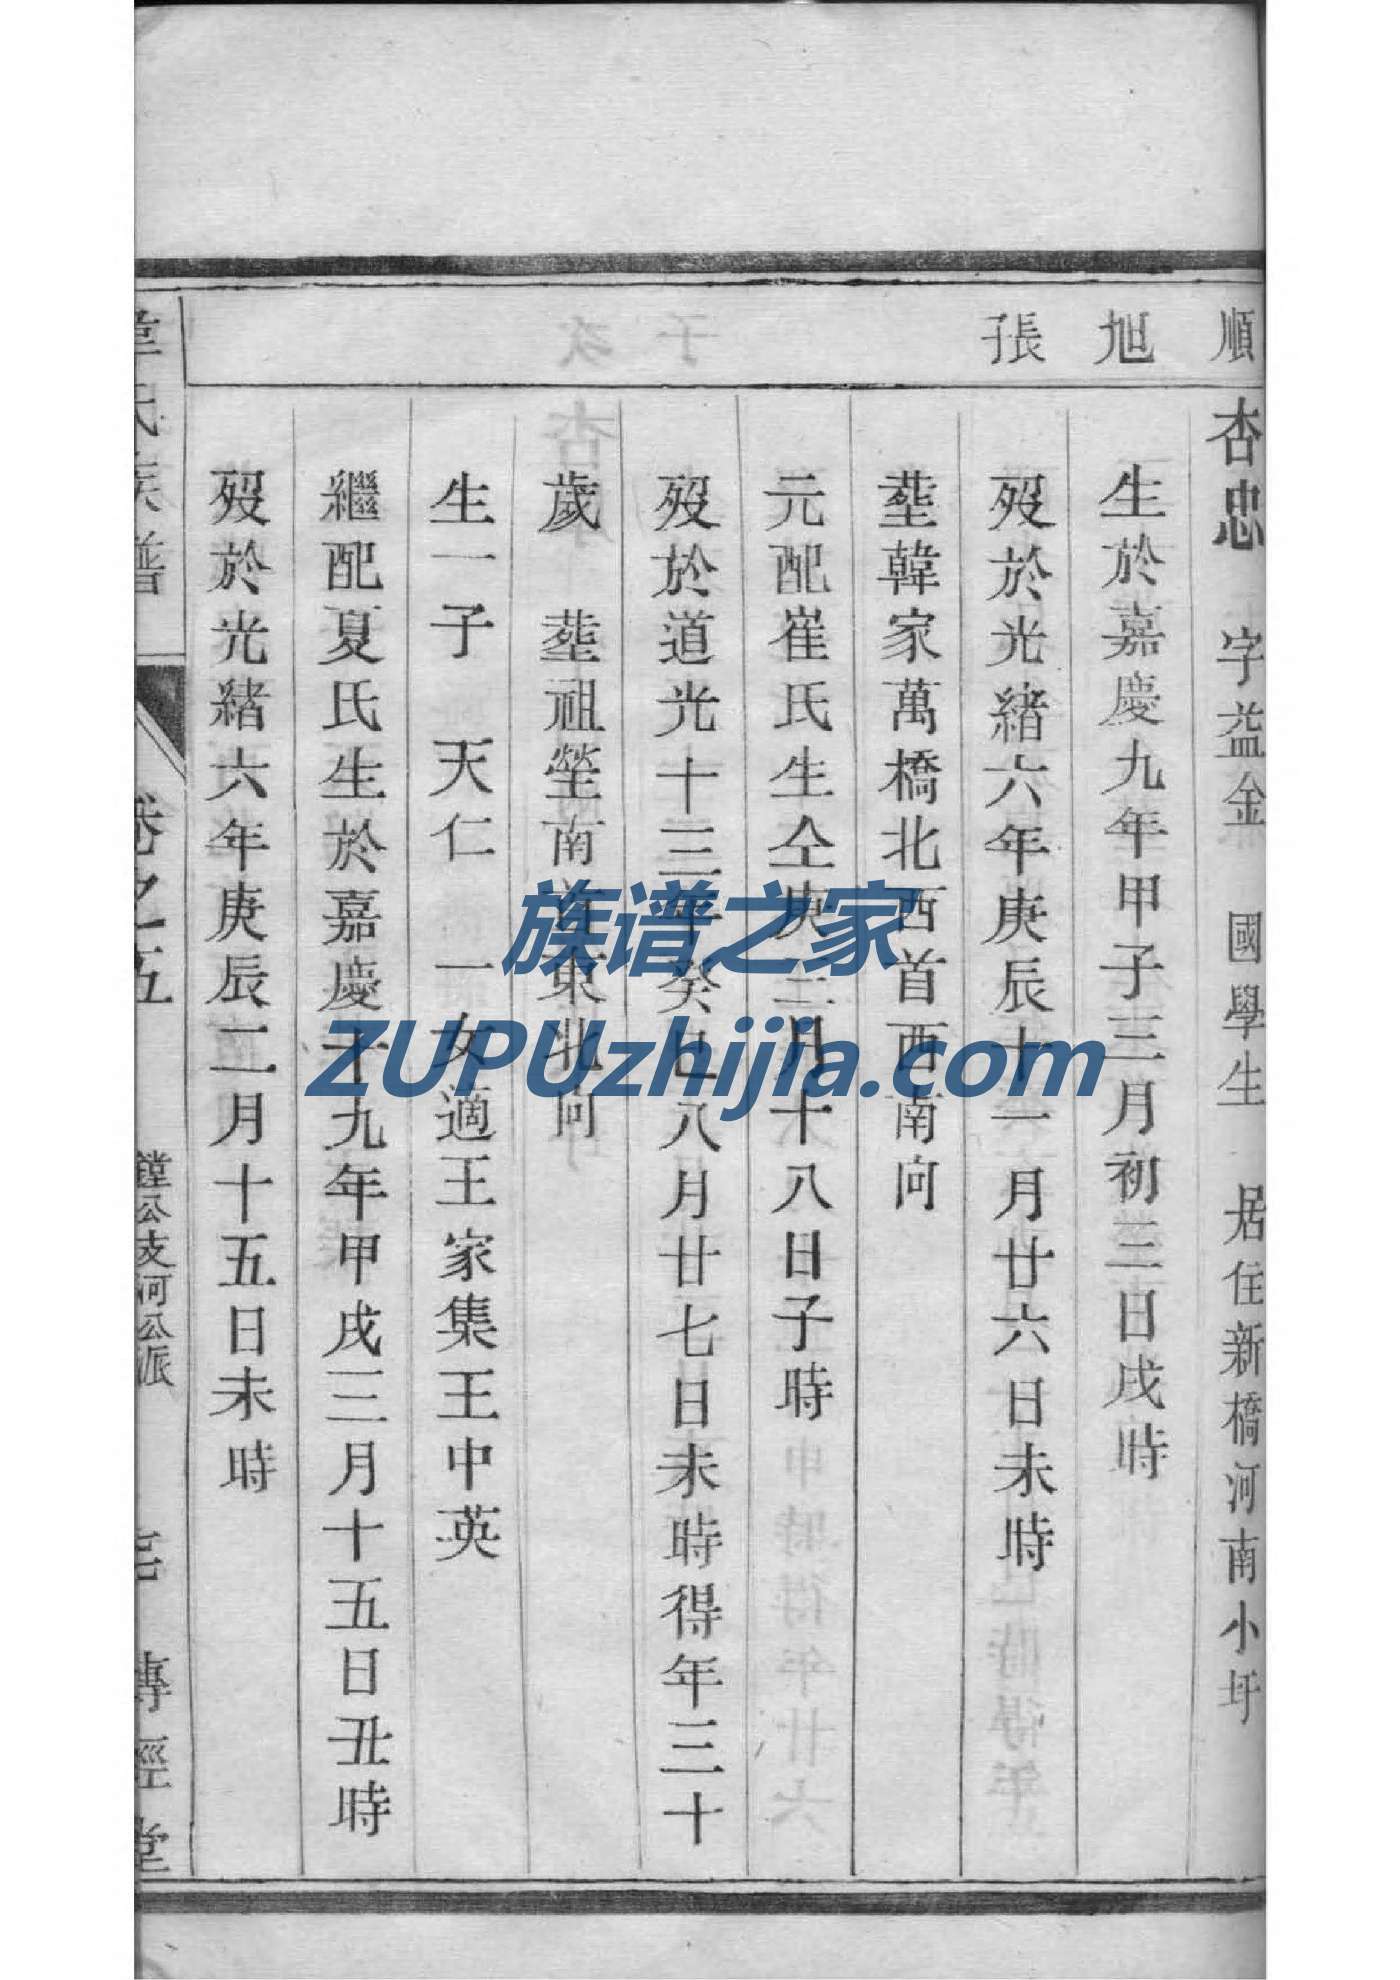 順 旭 張
杏忠 字益金 國學生 居住新橋河南小圩
生於嘉慶九年甲子三月初三日戌時
歿於光緒六年庚辰十一月廿六日未時
塟韓家萬橋北西首西南向
元配崔氏生仝庚三月十八日子時
歿於道光十三年癸巳八月廿七日未時得年三十
歲 塟祖塋南首東北向
生一子 天仁 一女適王家集王中英
繼配夏氏生於嘉慶十九年甲戌三月十五日丑時
歿於光緒六年庚辰二月十五日未時
氏族譜 卷之五 鏜公支河公派 傳經堂
族谱之家
ZUPUzhijia.com